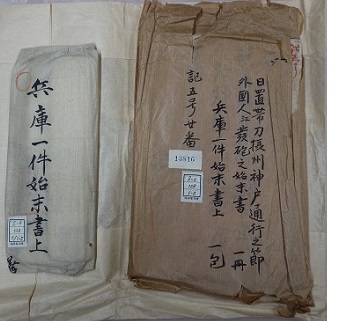 日置帯刀摂州神戸通行之節
外國人江発砲之始末書 一冊
兵庫一件始末書上 一包
記五号廿番
13816
兵庫一件始末書上